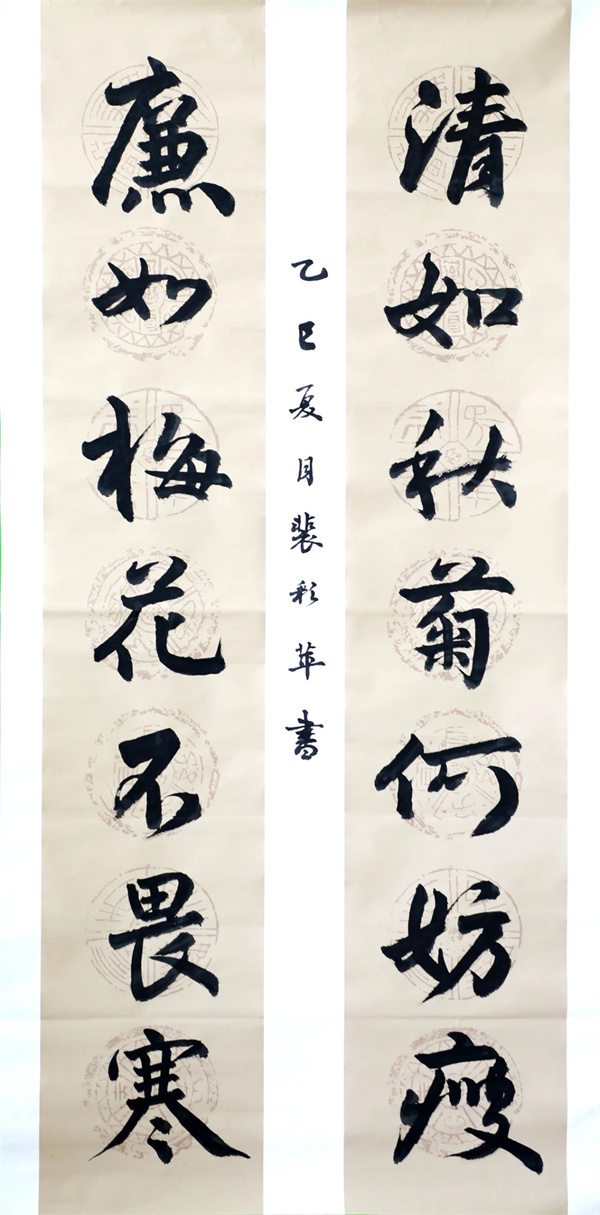 清如秋菊何妨瘦
廉如梅花不畏寒
乙巳夏月裴彩苹书